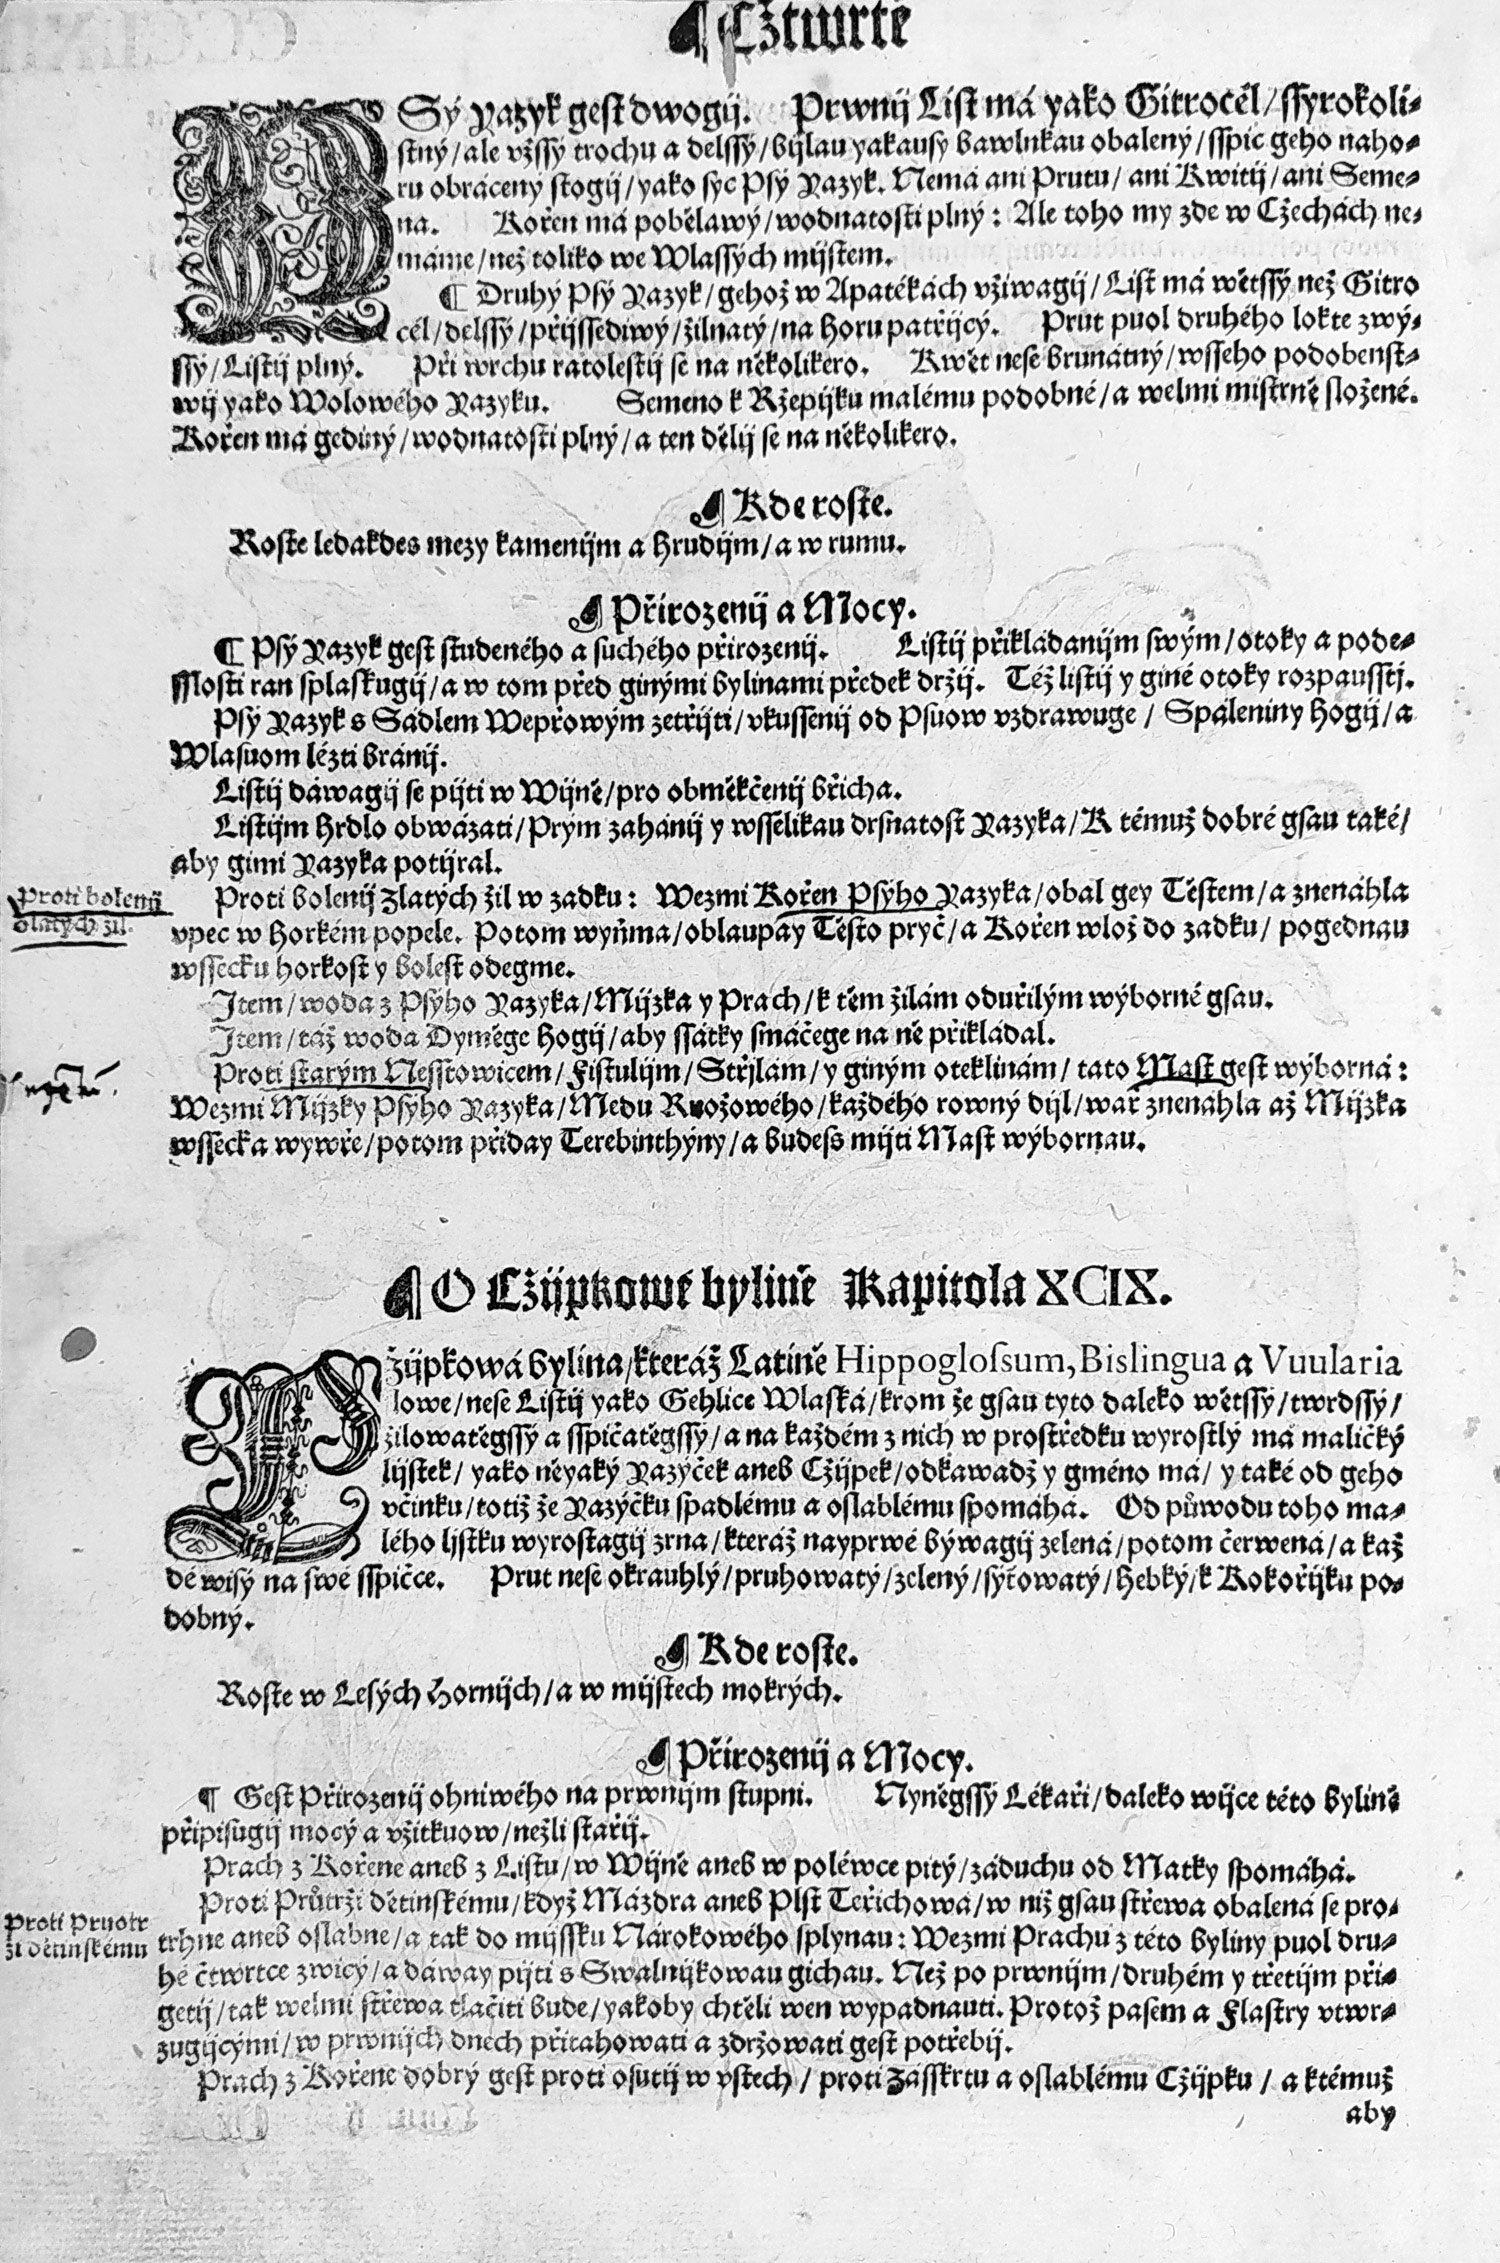 ¶ Cžtwrté
PSý Yazyk gest dwogij. Prwnij List má yako Gitrocél / ssyrokoli-
stný / ale vžssý trochu a delssý / bijlau yakausy bawlnkau obalený / sspic geho naho-
ru obrácený stogij / yako syc Psý Yazyk. Nemá ani Prutu / ani Kwitij / ani Seme-
na. Kořen má pobělawý / wodnatosti plný : Ale toho my zde w Cžechách ne-
máme / než toliko we Wlassých mijstem.
¶ Druhý Psý Yazyk / gehož w Apatékách vžiwagij / List má wětssý než Gitro
cél / delssý / přijssediwý / žilnatý / na horu patřijcý. Prut puol druhého lokte zwý-
ssý / Listij plný. Při wrchu ratolestij se na několikero. Kwět nese brunátný / wsseho podobenst-
wij yako Wolowého Yazyku. Semeno k Ržepijku malému podobné / a welmi mistrně složené.
Kořen má gediný / wodnatosti plný / a ten dělij se na několikero.
¶ Kde roste.
Roste ledakdes mezy kamenijm a hrudijm / a w rumu.
¶ Přirozenij a Mocy.
¶ Psý Yazyk gest studeného a suchého přirozenij. Listij přikládanijm swým / otoky a pode-
sslosti ran splaskugij / a w tom před ginými bylinami předek držij. Též listij y giné otoky rozpausstj.
Psý Yazyk s Sádlem Wepřowým zetřijti / vkussenij od Psuow vzdrawuge / Spáleniny hogij / a
Wlasuom lézti bránij.
Listij dáwagij se pijti w Wijně / pro obměkčenij břicha.
Listijm hrdlo obwázati / Prým zahánij y wsselikau drsnatost Yazyka / K témuž dobré gsau také /
aby gimi Yazyka potijral.
Proti bolenij
zlatých žil.
Proti bolenij Zlatých žil w zadku : Wezmi Kořen Psýho Yazyka / obal gey Těstem / a znenáhla
vpec w horkém popele. Potom wyňma / oblaupay Těsto pryč / a Kořen wlož do zadku / pogednau
wssecku horkost y bolest odegme.
Item / woda z Psýho Yazyka / Mijzka y Prach / k těm žilám oduřilým wýborné gsau.
Item / táž woda Dyměge hogij / aby ssátky smáčege na ně přikládal.
Proti starým Nesstowicem / Fistulijm / Střjlám / y giným oteklinám / tato Mast gest wýborná :
Wezmi Mijzky Psýho Yazyka / Medu Ruožowého / každého rowný dijl / wař znenáhla až Mijzka
wssecka wywře / potom přiday Terebinthýny / a budess mijti Mast wýbornau.
¶ O Cžijpkowé bylině Kapitola XCIX.
Cžijpkowá bylina / kteráž Latině Hippoglossum, Bislingua a Vuularia
slowe / nese Listij yako Gehlice Wlaská / krom že gsau tyto daleko wětssý / twrdssý /
žilowatěgssý a sspičatěgssý / a na každém z nich w prostředku wyrostlý má maličký
lijstek / yako něyaký Yazýček aneb Cžijpek / odkawadž y gméno má / y také od geho
včinku / totiž že Yazýčku spadlému a oslablému spomáhá. Od půwodu toho ma-
lého ljstku wyrostagij zrna / kteráž nayprwé býwagij zelená / potom čerwená / a kaž
dé wisý na swé sspičce. Prut nese okrauhlý / pruhowatý / zelený / sýťowatý / hebký / k Kokořijku po-
dobný.
¶ Kde roste.
Roste w Lesých hornijch / a w mijstech mokrých.
¶ Přirozenij a Mocy.
¶ Gest Přirozenij ohniwého na prwnijm stupni. Nyněgssý Lékaři / daleko wijce této bylině
připisugij mocý a vžitkuow / nežli stařij.
Prach z Kořene aneb z Listu / w Wijně aneb w poléwce pitý / záduchu od Matky spomáhá.
Proti Pruotr
ži dětinskému
Proti Průtrži dětinskému / když Mázdra aneb Plst Teřichowá / w niž gsau střewa obalená se pro-
trhne aneb oslabne / a tak do mijssku Nárokowého splynau : Wezmi Prachu z této byliny puol dru-
hé čtwrtce zwicý / a dáway pijti s Swalnijkowau gichau. Než po prwnijm / druhém y třetijm při-
getij / tak welmi střewa tlačiti bude / yakoby chtěli wen wypadnauti. Protož pasem a Flastry vtwr-
zugijcými / w prwnijch dnech přitahowati a zdržowati gest potřebij.
Prach z Kořene dobrý gest proti osutij w vstech / proti Zásskrtu a oslablému Cžijpku / a k témuž
aby